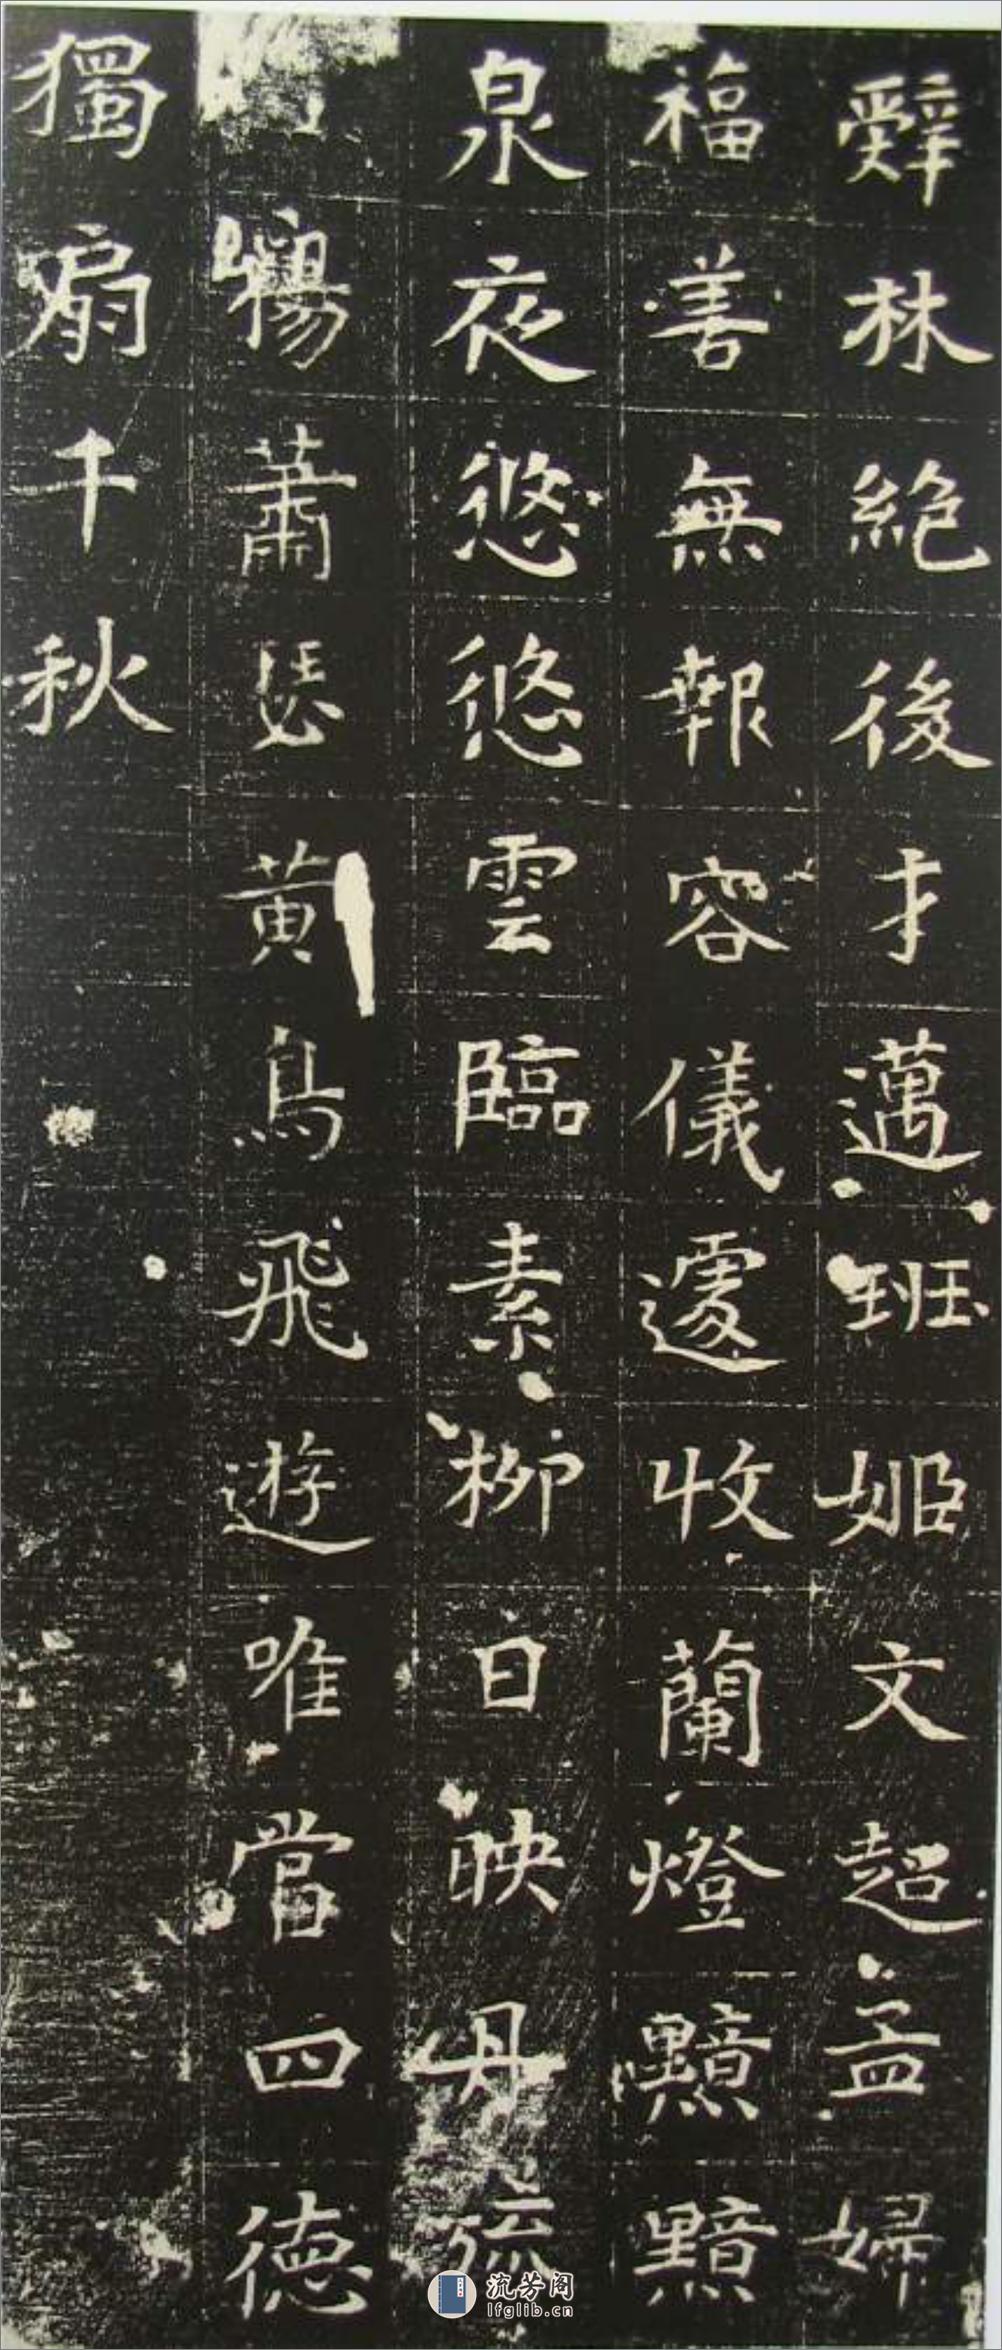 辭林絶後才邁班姬文超孟婦
福善無報容儀遽收蘭燈黯黯
泉夜悠悠雲臨素柳日映丹旒
楊蕭瑟黄鳥飛遊唯當四德
獨扇千秋
流芳阁
lfglib.cn